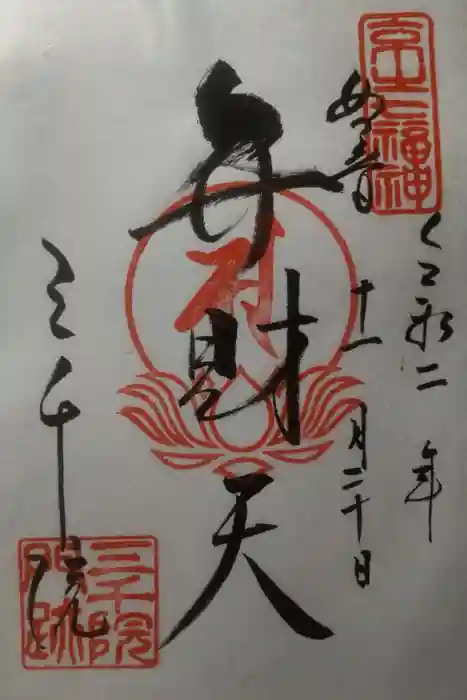 京之七福神
妙音
令和二年
十一月二十日
弁財天
三千院
三千院
門跡